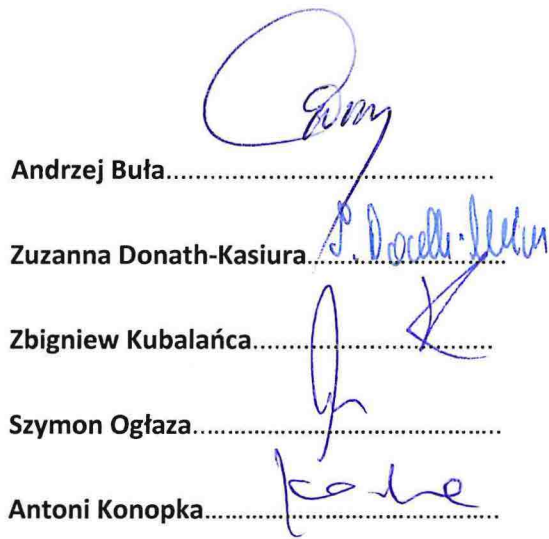 Andrzej Buła..............................................
Zuzanna Donath-Kasiura............................
Zbigniew Kubalańca...................................
Szymon Ogłaza...........................................
Antoni Konopka..........................................